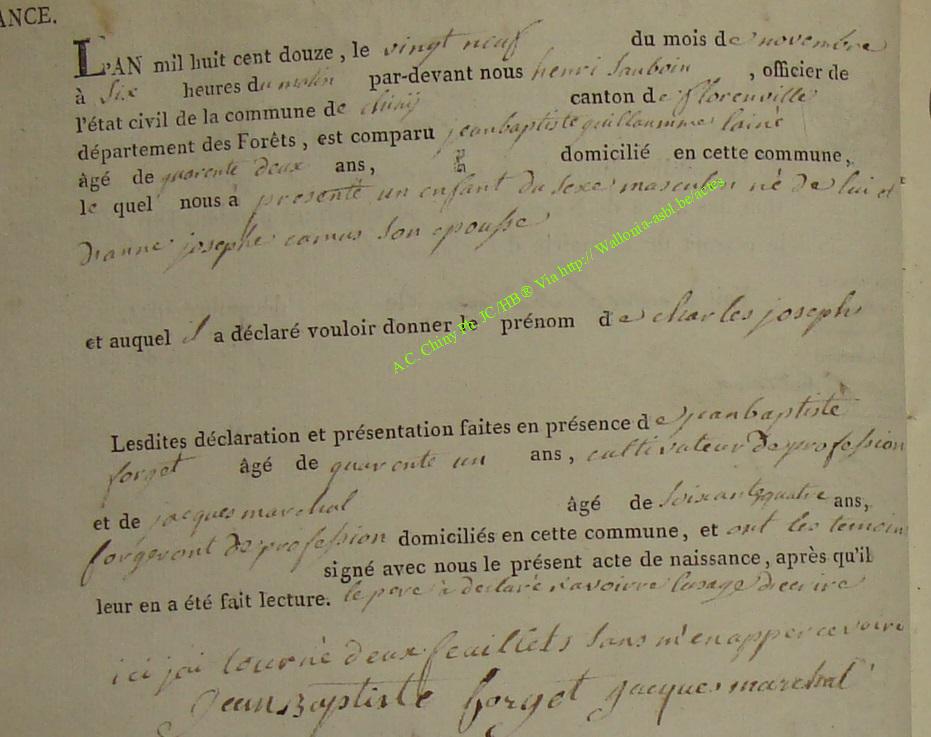 ANCE.
L'AN mil huit cent douze, le vingt neuf du mois de novembre
à six heures du matin par-devant nous henri Sauboin, officier de
l'état civil de la commune de chiny canton de florenville
département des Forêts, est comparu jeanbaptiste guillaumme lainé
âgé de quarente deux ans, domicilié en cette commune,
le quel nous à presenté un enfant du sexe masculin né de lui et
dianne josephe camus son epousse
et auquel il a déclaré vouloir donner le prénom de charles joseph
Lesdites déclaration et présentation faites en présence de jeanbaptiste
forget âgé de quarente un ans, cultivateur de profession
et de jacques marchal âgé de soixante quatre ans,
forgeront de profession domiciliés en cette commune, et ont les temoin
signé avec nous le présent acte de naissance, après qu'il
leur en a été fait lecture. le pere à declaré n'avoirre lusage decrire
ici jai tourné deux feuillets sans m'en appercevoire
Jean Baptiste forget jacques marchal
A.C. Chiny Ph JC/HB® Via http:// Wallonia-asbl.be/actes